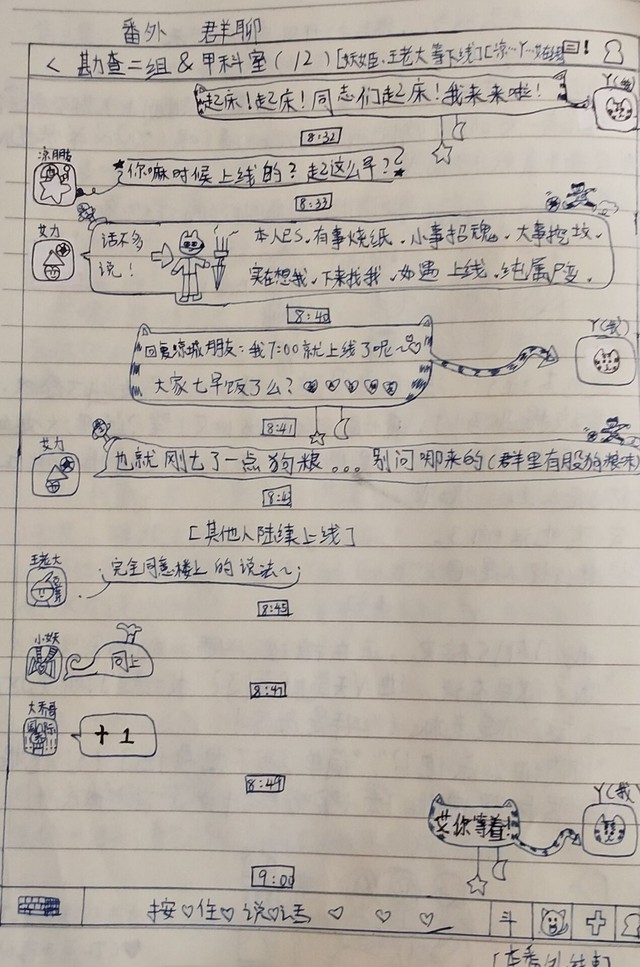 番外 群聊
< 勘查二组 & 甲科室 (12) [妖姬、王老大等下线] [凉…Y…艾在线
Y(我)
起床！起床！同志们起床！我来来啦！
8:32
凉朋友
你嘛时候上线的？起这么早？
8:33
艾力
话不多说！
本人ES，有事烧纸，小事招魂，大事挖坟，
实在想我，下来找我，如遇上线，纯属尸变，
8:40
Y(我)
回复凉城朋友：我7:00就上线了呢~
大家七早饭了么？
8:41
艾力
也就刚七了一点狗粮...别问哪来的(群里有股狗粮味)
[其他人陆续上线]
王老大
完全同意楼上的说法~
8:45
小妖
同上
8:47
大乔哥
+1
8:49
Y(我)
艾你等着！
9:00
按♡住♡说♡话 ♡ ♡ ♡
斗